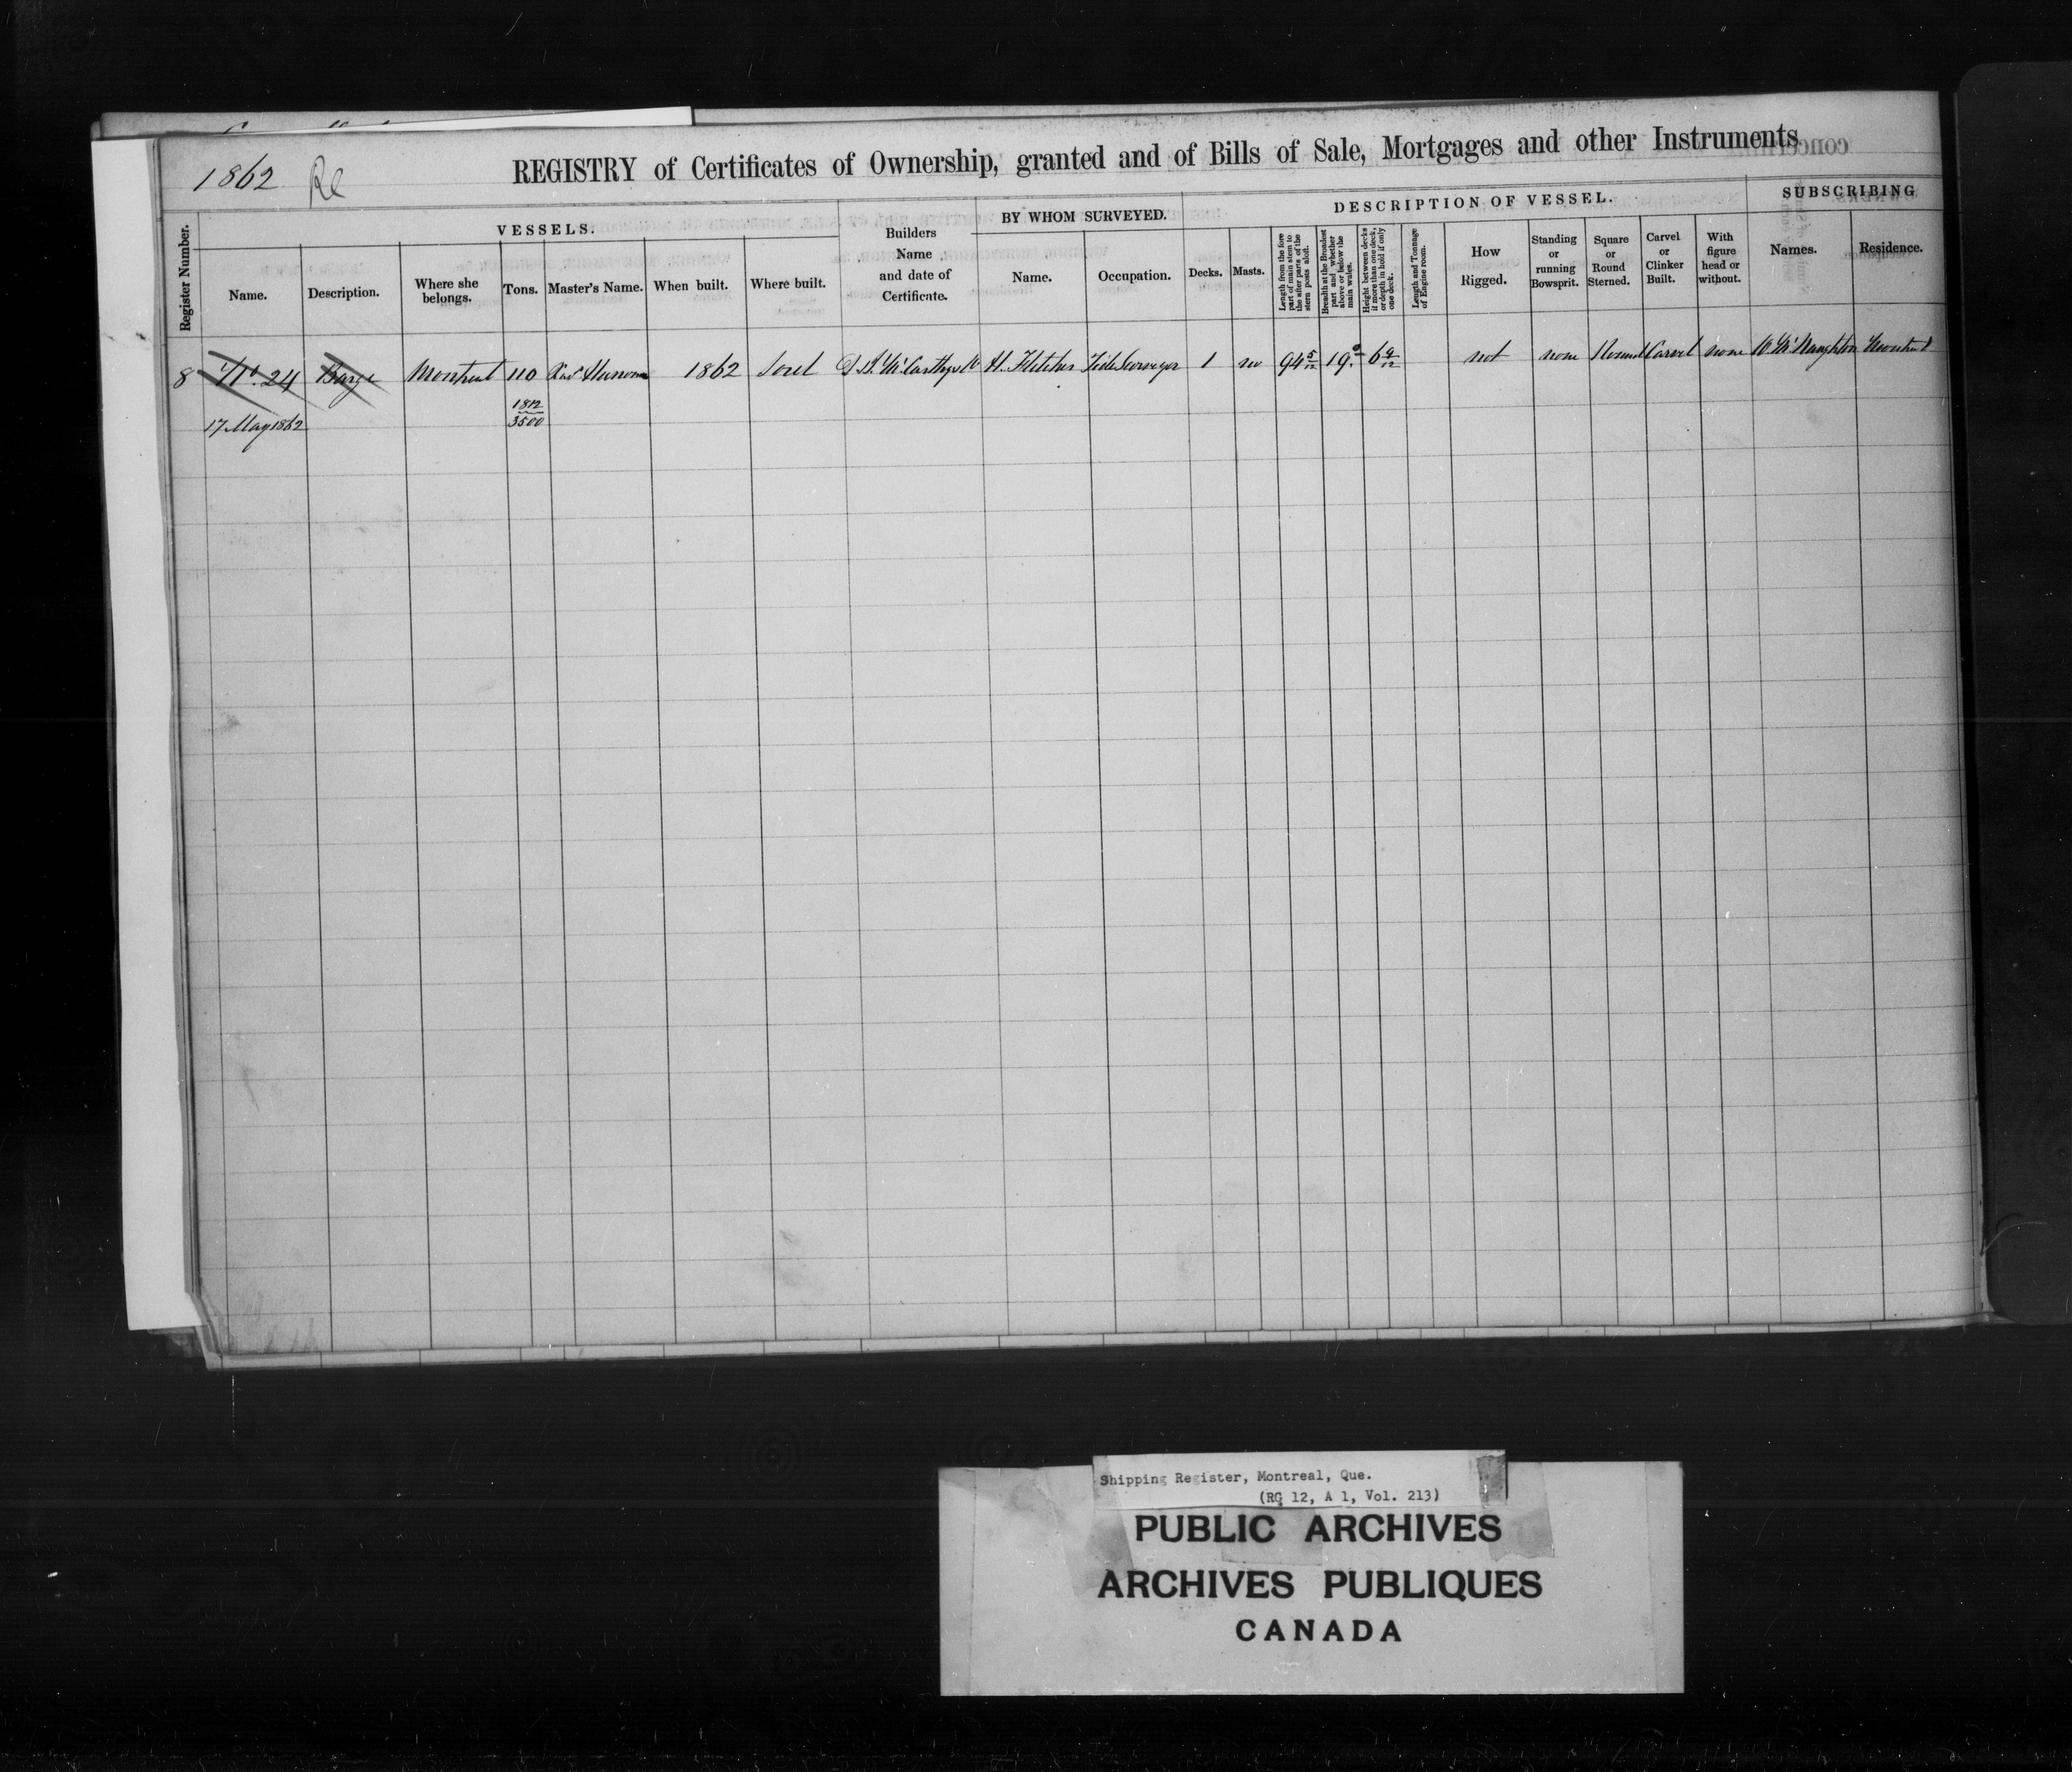 1862 Re
REGISTRY of Certificates of Ownership, granted and of Bills of Sale, Mortgages and other Instruments
Register Number.
VESSELS.
Name.
Description.
Where she belongs.
Tons.
Master's Name.
When built.
Where built.
Builders Name and date of Certificate.
BY WHOM SURVEYED.
Name.
Occupation.
DESCRIPTION OF VESSEL.
Decks.
Masts.
Length from the fore part of main stem to the after parts of the stern posts aloft.
Breadth at the Broadest part and whether above or below the main wales.
Height between decks if more than one deck, or depth in hold if only one deck.
Length and Tonnage of Engine room.
How Rigged.
Standing or running Bowsprit.
Square or Round Sterned.
Carvel or Clinker Built.
With figure head or without.
SUBSCRIBING
Names.
Residence.
8 No. 24 Barge Montreal 110 1862 Sorel McCarthy H. Fletcher Tide Surveyor 1 no 94 5/12 19 6 9/12 not none Round Carvel none W McNaughton Montreal
17 May 1862 1812/3500
Shipping Register, Montreal, Que.
(RG 12, A 1, Vol. 213)
PUBLIC ARCHIVES
ARCHIVES PUBLIQUES
CANADA